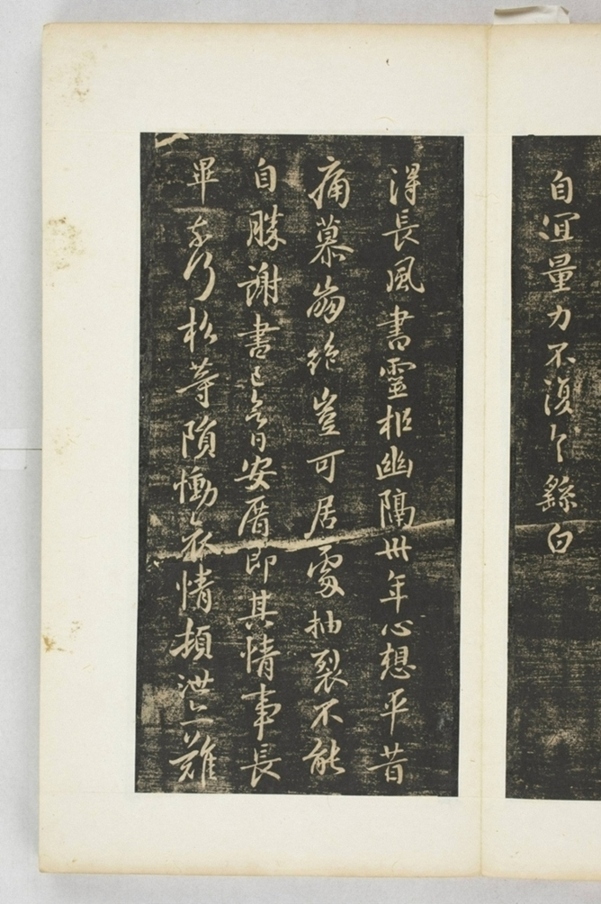 自宜量力不復繇白
得長風書靈柩幽隔卅年心想平昔
痛慕崩絕豈可居處抽裂不能
自勝謝書已令日安厝即其情事長
畢奈何松等隕慟哀情頓泄亦難